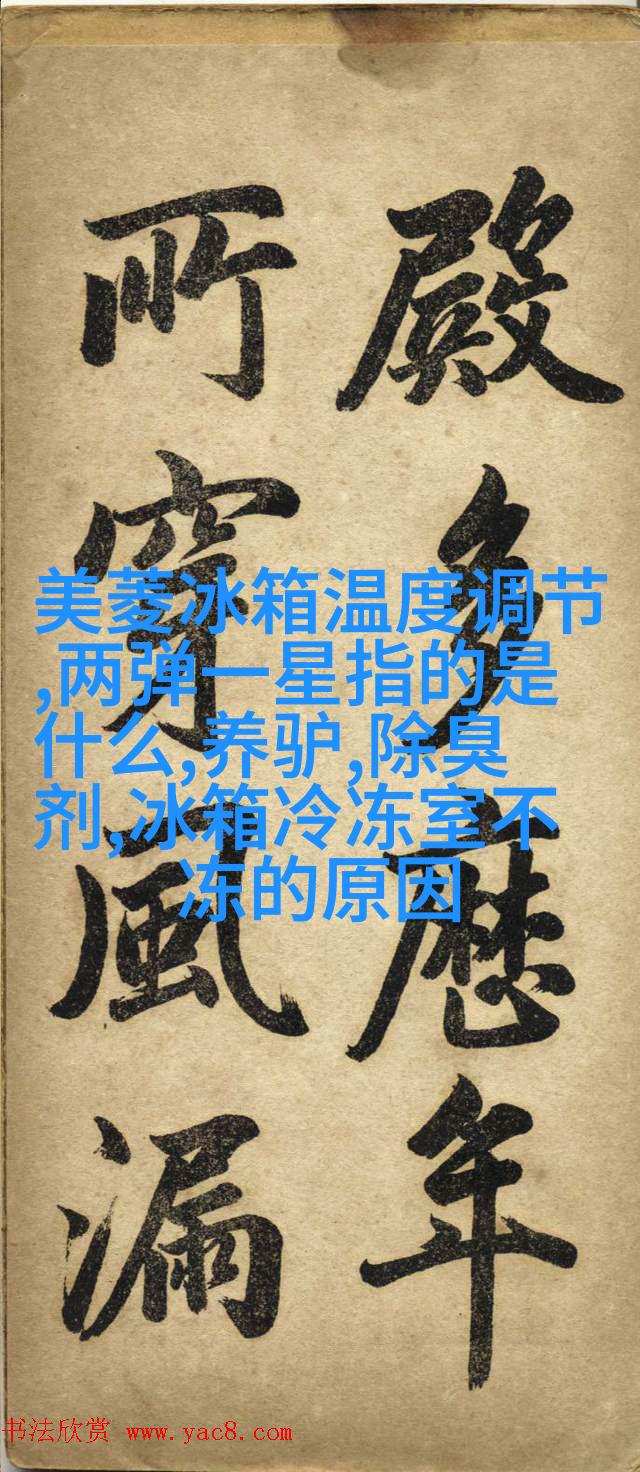 殿多歷年
所穿風漏
美菱冰箱温度调节
,两弹一星指的是
什么,养驴,除臭
剂,冰箱冷冻室不
冻的原因
书法欣赏 www.yac8.com